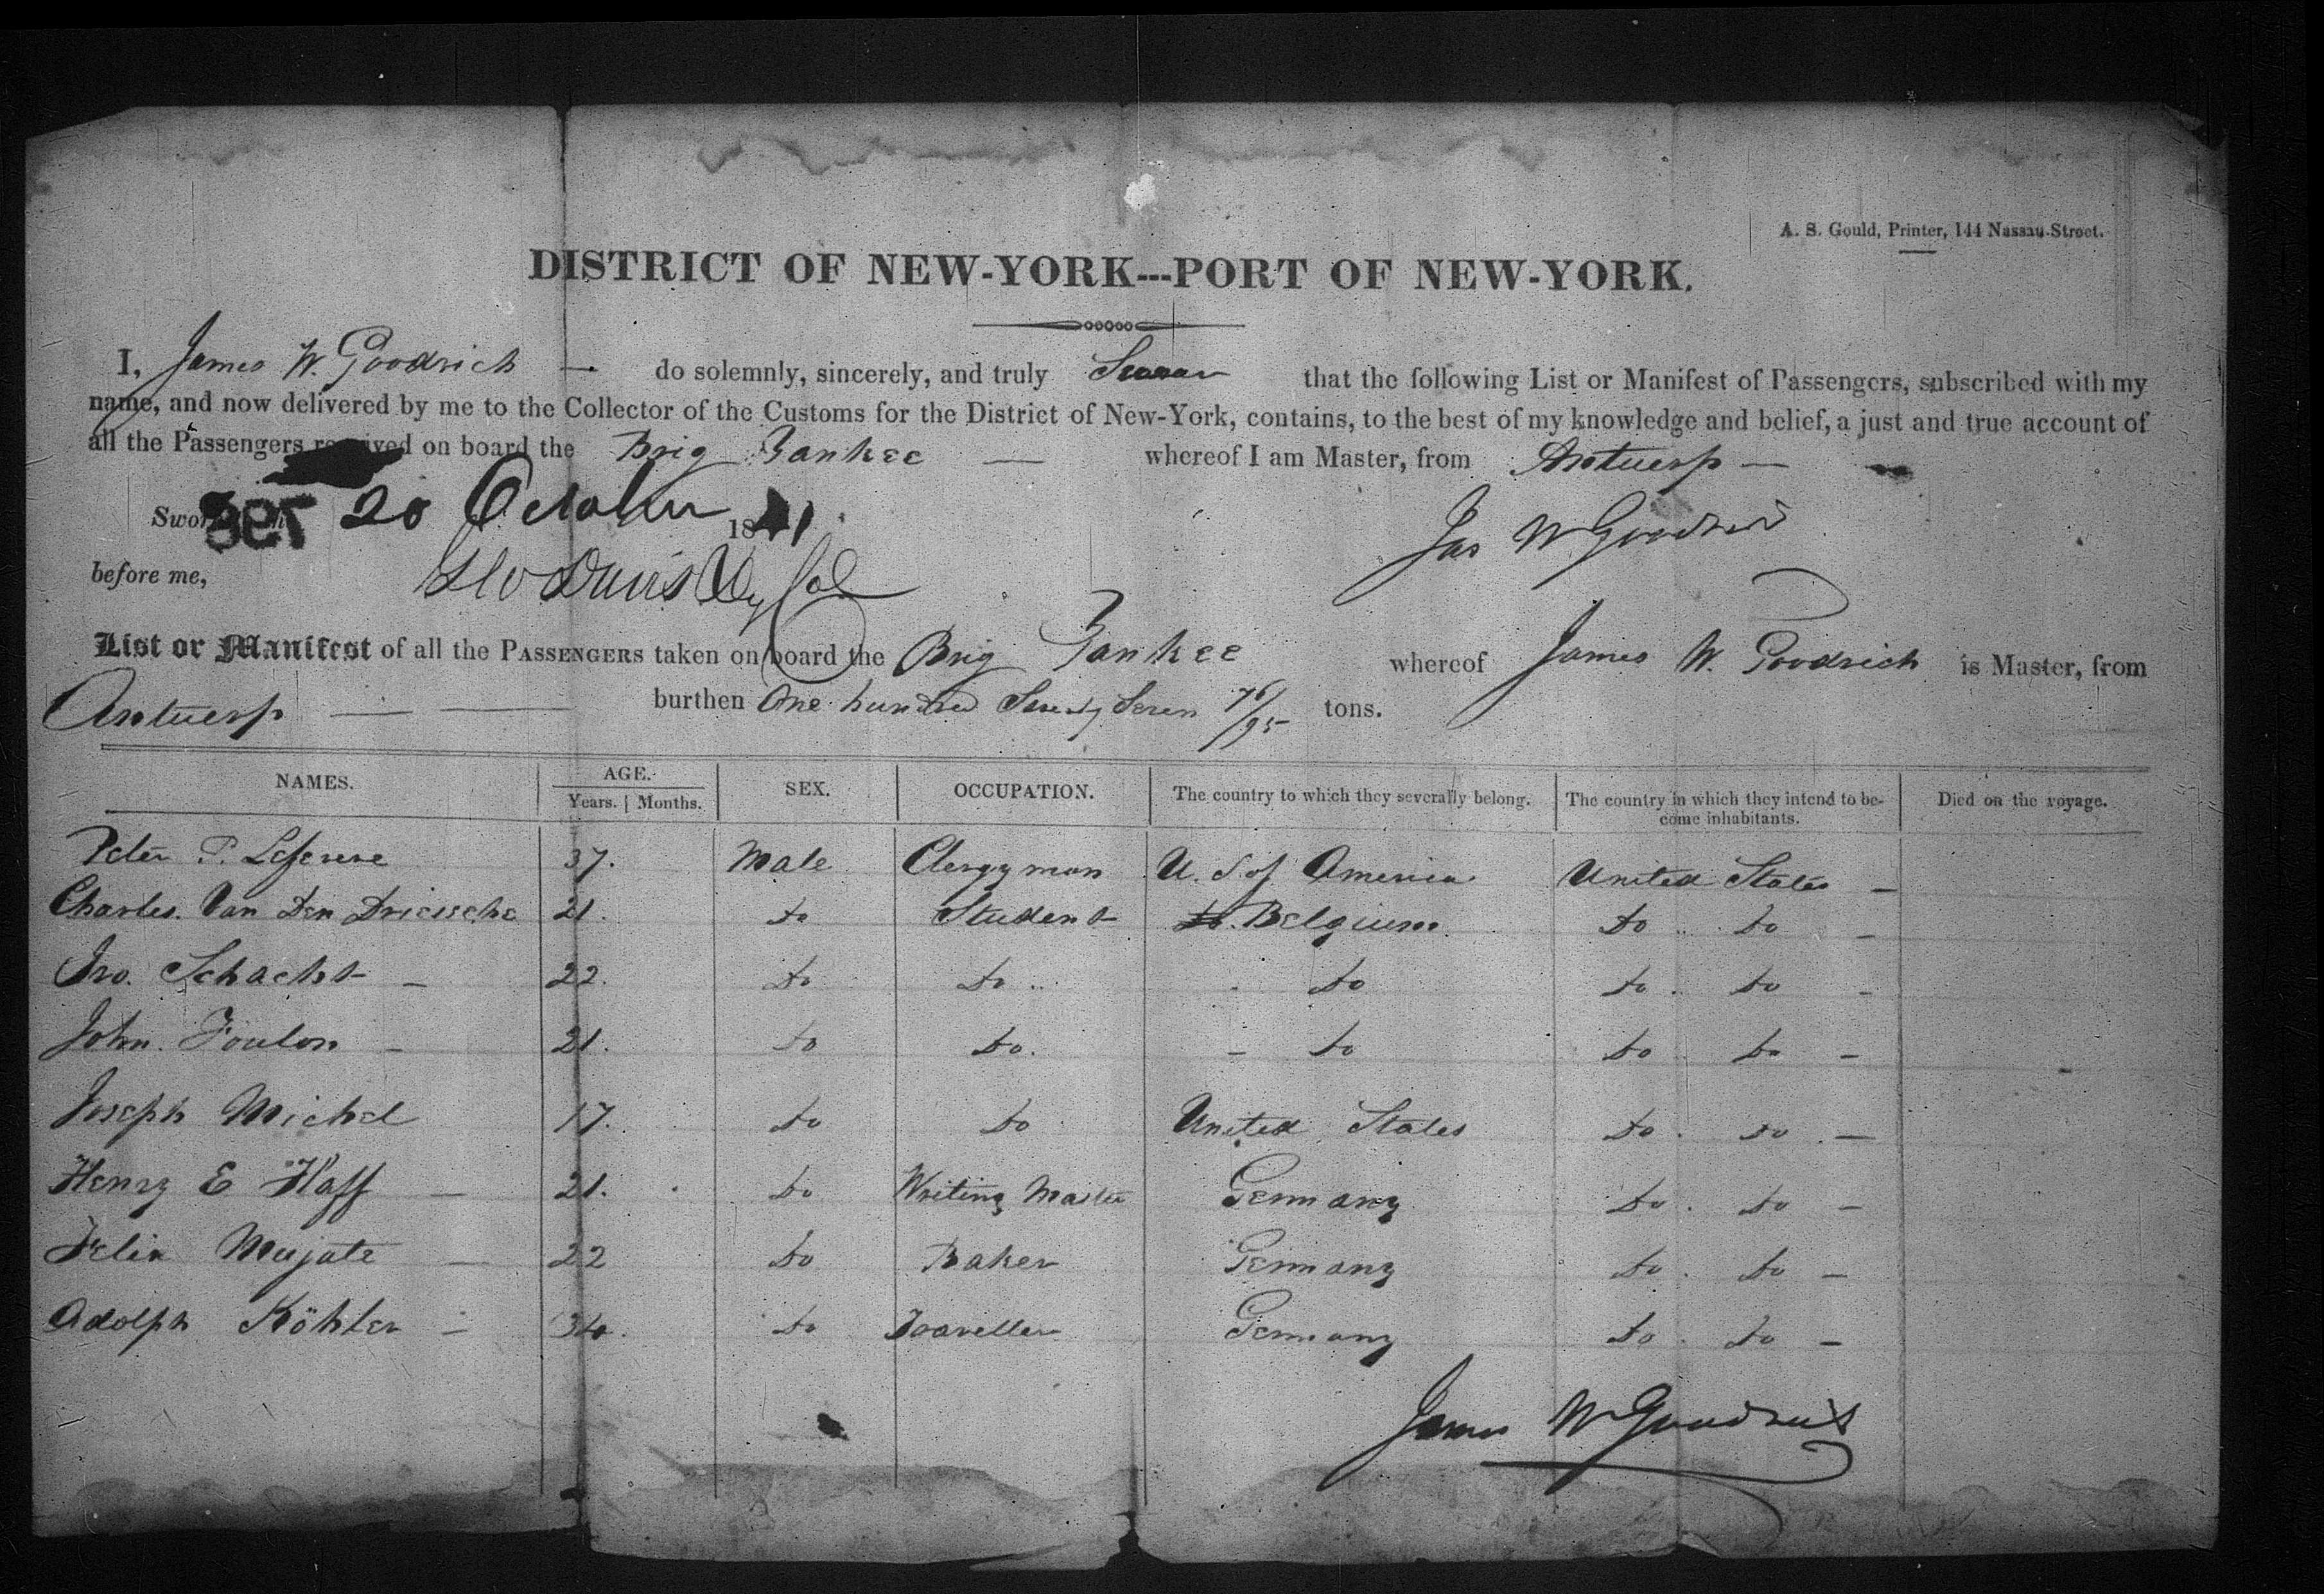 A. S. Gould, Printer, 144 Nassau-Street.
DISTRICT OF NEW-YORK---PORT OF NEW-YORK.
I, James W. Goodrich — do solemnly, sincerely, and truly Swear that the following List or Manifest of Passengers, subscribed with my
name, and now delivered by me to the Collector of the Customs for the District of New-York, contains, to the best of my knowledge and belief, a just and true account of
all the Passengers received on board the Brig Yankee — whereof I am Master, from Antwerp —
Sworn 867 20 October 1841
Jas W Goodrich
before me,
List or Manifest of all the PASSENGERS taken on board the Brig Yankee whereof James W. Goodrich is Master, from
Antwerp — — burthen One hundred Seventy Seven 76/95 tons.
NAMES. AGE. SEX. OCCUPATION. The country to which they severally belong. The country in which they intend to be- Died on the voyage.
Years. | Months. come inhabitants.
Peter P. Lefevere 37. Male Clergyman U. S of America United States —
Charles Van Den Driessche 21. do Student do. Belgium do do —
Jno. Schacht — 22. do do do do do —
John Foulon — 21. do do. – do do do —
Joseph Michel 17. do do United States do do —
Henry E Haff — 21. do Writing Master Germany do do —
Felix Mujate — 22 do Baker Germany do do —
Adolph Köhler — 34. do Traveller Germany do do —
James W Goodrich